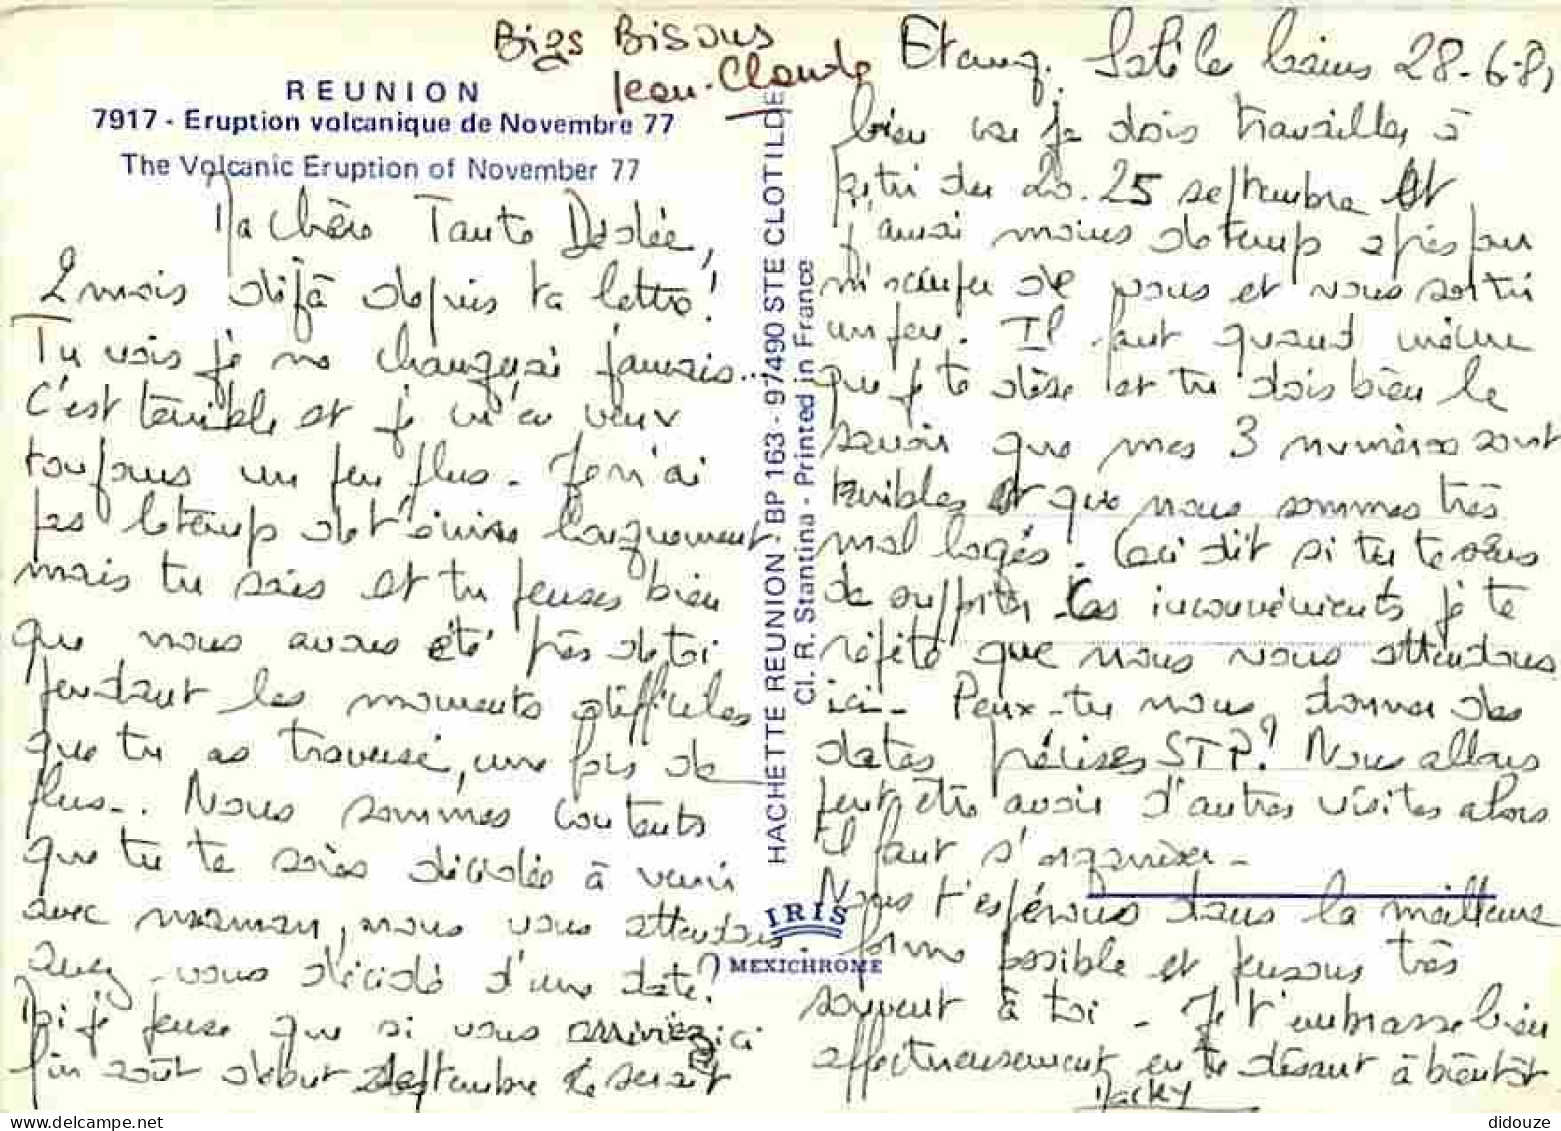 Bigs Bisous
Jean-Claude
Etang Salé les bains 28-6-81
REUNION
7917 - Eruption volcanique de Novembre 77
The Volcanic Eruption of November 77
Ma chère Tante Désirée,
2 mois déjà depuis ta lettre!
Tu vois je ne changerai jamais...
C'est terrible et je m'en veux
toujours un peu plus. Je n'ai
pas le temps de t'écrire longuement
mais tu sais et tu penses bien
que nous avons été près de toi
pendant les moments difficiles
que tu as traversé, une fois de
plus... Nous sommes contents
que tu te sois décidée à venir
avec maman, nous vous attendons.
Avez-vous décidé d'une date?
Moi je pense que si vous arriviez ici
fin août début septembre ce serait
bien car je dois travailler à
partir du 20.25 septembre et
j'aurai moins de temps après pour
m'occuper de vous et vous sortir
un peu. Il faut quand même
que je te dise et tu dois bien le
savoir que mes 3 numéros sont
terribles et que nous sommes très
mal logés. Ceci dit si tu te sens
de supporter ces inconvénients je te
répète que nous vous attendons
ici. Peux-tu nous donner des
dates précises STP? Nous allons
peut être avoir d'autres visites alors
il faut s'organiser.
Nous t'espérons dans la meilleure
forme possible et pensons très
souvent à toi. Je t'embrasse bien
affectueusement en te disant à bientôt
Macky
HACHETTE REUNION - BP 163 - 97490 STE CLOTILDE
Cl. R. Stantina - Printed in France
IRIS
MEXICHROME
didouze